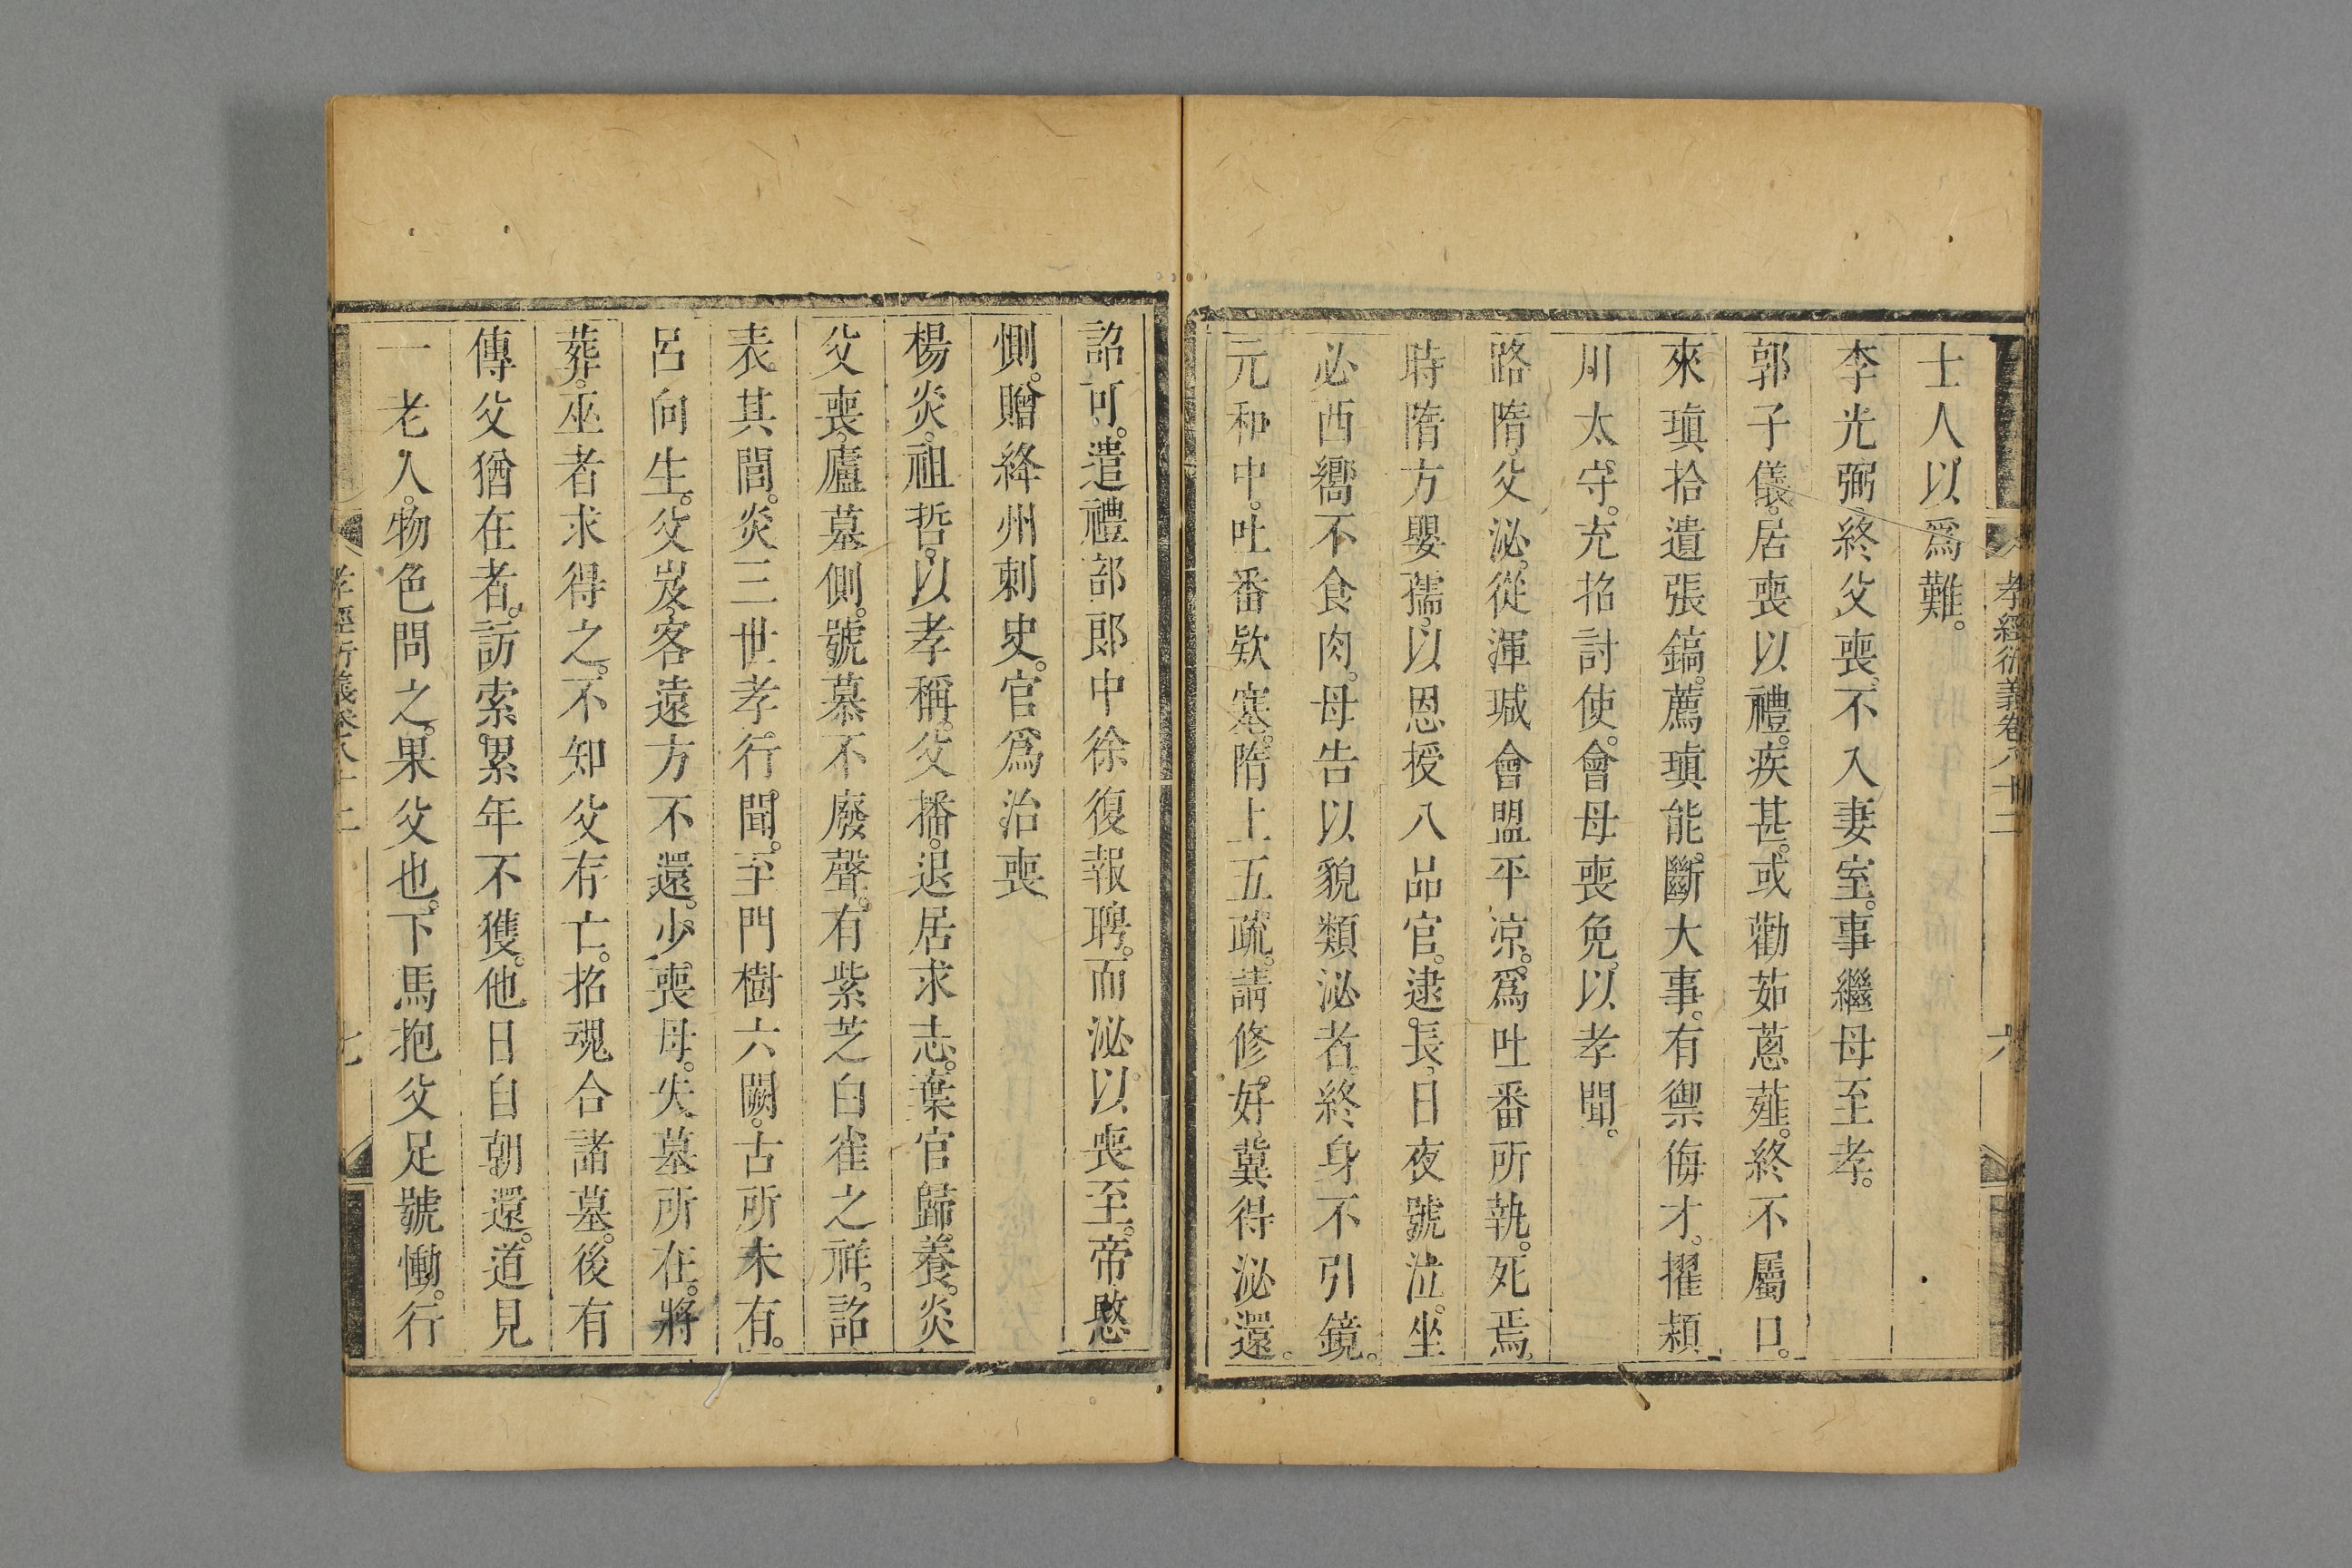 孝經衍義卷八十二
六
士人以爲難。
李光弼終父喪不入妻室。事繼母至孝。
郭子儀。居喪以禮。疾甚。或勸茹蔥薤。終不屬口。
來瑱拾遺張鎬。薦瑱能斷大事。有禦侮才。擢潁
川太守。充招討使。會母喪免。以孝聞。
路隋。父泌。從渾瑊會盟平涼。爲吐番所執。死焉。
時隋方嬰孺。以恩授八品官。逮長。日夜號泣。坐
必西嚮不食肉。母告以貌類泌者。終身不引鏡。
元和中。吐番欵塞。隋上五疏。請修好。冀得泌還。
詔可。遣禮部郎中徐復報聘。而泌以喪至。帝愍
惻。贈絳州刺史。官爲治喪
楊炎。祖哲。以孝稱。父播。退居求志。葉官歸養。炎
父喪。廬墓側。號慕不廢聲。有紫芝白雀之祥。詔
表其閭。炎三世孝行聞。至門樹六闕。古所未有。
呂向生。父岌。客遠方不還。少喪母。失墓所在。將
葬。巫者求得之。不知父存亡。招魂合諸墓。後有
傳父猶在者。訪索累年不獲。他日自朝還。道見
一老人。物色問之。果父也。下馬抱父足號慟。行
孝經衍義卷八十二
七